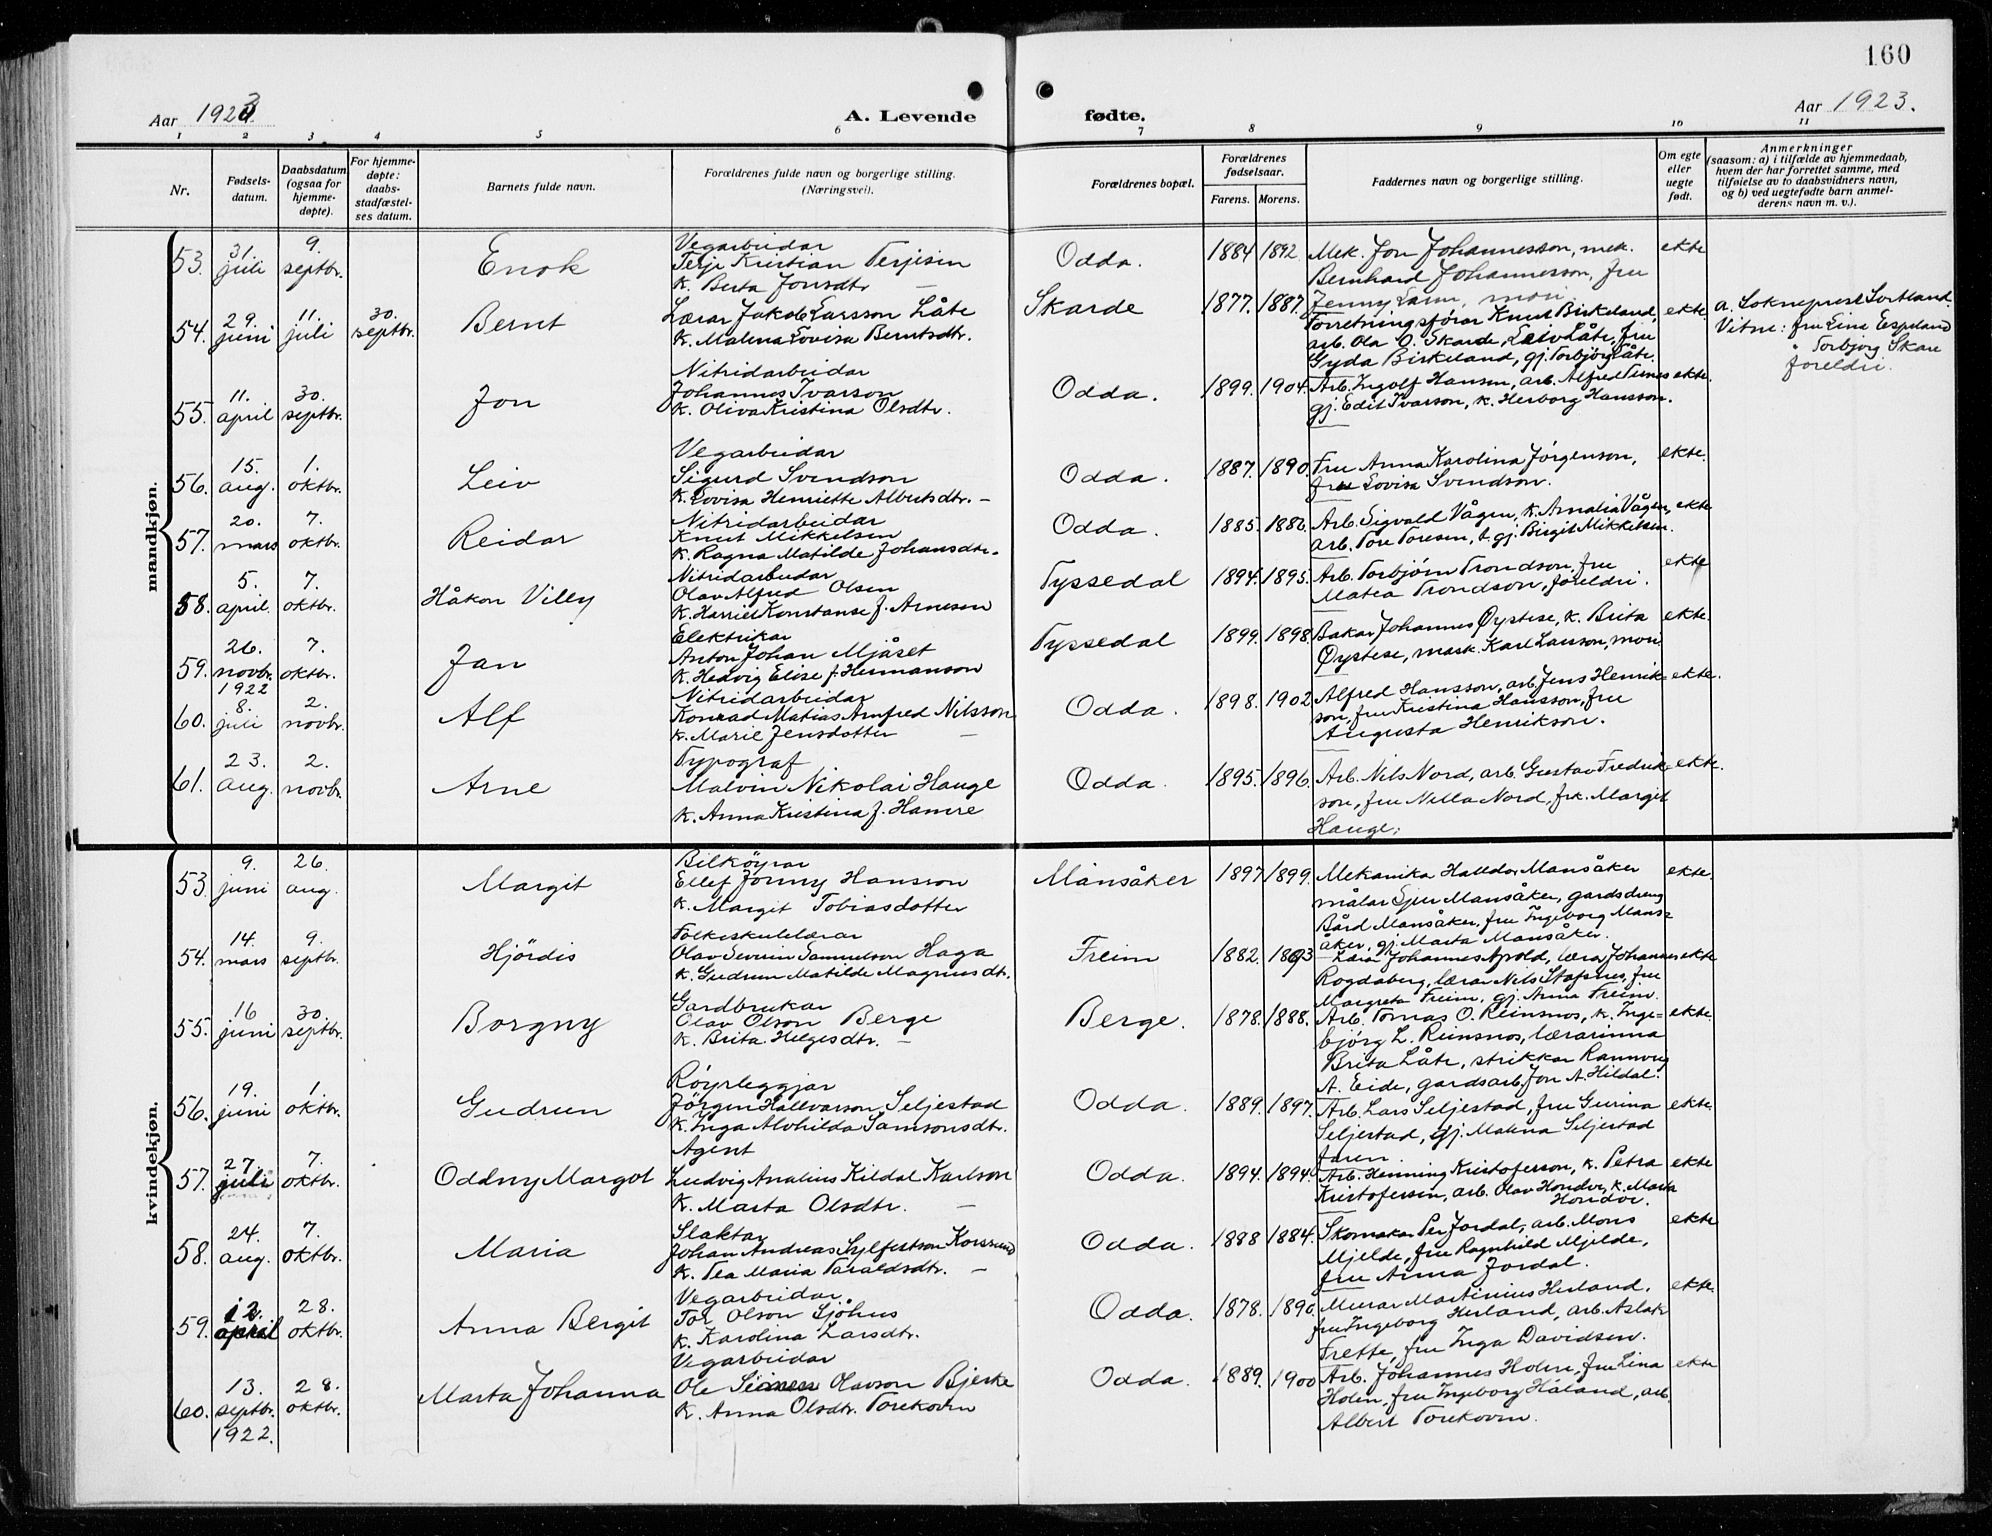 160
Aar 1923
A. Levende
fødte.
Aar 1923.
1 2 3 4 5 6 7 8 9 10 11
Nr.
Fødsels-
datum.
Daabsdatum
(ogsaa for
hjemme-
døpte).
For hjemme-
døpte:
daabs-
stadfæstel-
ses datum.
Barnets fulde navn.
Forældrenes fulde navn og borgerlige stilling.
(Næringsvei).
Forældrenes bopæl.
Forældrenes
fødselsaar.
Farens. Morens.
Faddernes navn og borgerlige stilling.
Om egte
eller
uegte
født.
Anmerkninger
(saasom: a) i tilfælde av hjemmedaab,
hvem der har forrettet samme, med
tilføielse av to daabsvidners navn,
og b) ved uegtefødte barn anmel-
derens navn m. v.).
mandkjøn.
53.
31.
juli
9.
septbr.
Enok
Vegarbeidar
Terje Kristian Terjesen
k. Berta Jonsdtr. —
Odda.
1884 1892.
Mek. Jon Johannesson, mek.
Bernhard Johannesson, fru
Jenny Larm, mori
ekte
54.
29.
juni
11.
juli
30.
septbr.
Bernt
Lærar Jakob Larsson Låte
k. Malena Lovisa Berntsdtr.
Skarde
1877. 1887.
Forretningsførar Knut Birkeland,
arb. Ola O. Skarde, Leiv Låte, fru
Gyda Birkeland, gj. Torbjørg Låte.
ekte.
a. Sokneprest Sortland.
Vitne: fru Lina Espeland
" Torbjørg Skare
foreldri.
55.
11.
april
30.
septbr.
Jon
Nitridarbeidar
Johannes Ivarson
k. Oliva Kristina Olsdtr.
Odda.
1899. 1904.
Arb. Ingolf Hansen, arb. Alfred Ternes
gj. Edit Ivarson, k. Herborg Hansson.
ekte.
56.
15.
aug.
1.
oktbr.
Leiv
Vegarbeidar
Sigurd Svendson
k. Lovisa Henriette Albertsdtr. —
Odda.
1887. 1890.
Fru Anna Karolina Jørgenson,
fru Lovisa Svendson.
ekte.
57.
20.
mars
7.
oktbr.
Reidar
Nitridarbeidar
Knut Mikkelsen
k. Ragna Matilde Johansdtr.
Odda.
1885. 1886.
Arb. Sigvald Vågen, k. Amalia Vågen,
arb. Tore Toresen, t. gj. Birgit Mikkelsen.
ekte
58.
5.
april.
7.
oktbr.
Håkon Villy
Nitridarbeidar
Olav Alfred Olsen
k. Harriet Konstanse f. Arnesen
Tyssedal
1894. 1895.
Arb. Torbjörn Trondson, fru
Matea Trondson, foreldri.
ekte
59.
26.
novbr.
1922
7.
oktbr.
Jan
Elektrikar
Anton Johan Mjåset
k. Hedvig Elise f. Hermanson
Tyssedal
1899. 1898.
Bakar Johannes Øystese, k. Brita
Øystese, mask. Karl Larsson, mori
ekte.
60.
8.
juli
2.
novbr.
Alf
Nitridarbeidar
Konrad Matias Arnfred Nilsson
k. Marie Jensdotter —
Odda.
1898. 1902
Alfred Hansson, arb. Jens Henrik-
son, fru Kristina Hansson, fru
Augusta Henrikson.
ekte.
61.
23.
aug.
2.
novbr.
Arne
Typograf
Malvin Nikolai Hauge
k. Anna Kristina f. Hamre
Odda.
1895. 1896.
Arb. Nils Nord, arb. Gustav Fredrik-
son, fru Nella Nord, frk. Margit
Hauge;
ekte.
kvindekjøn.
53.
9.
juni
26.
aug.
Margit
Bilköyrar
Ellef Jonny Hansson
k. Margit Tobiasdotter
Månsåker
1897 1899.
Mekanika Halldor Mansåker
målar Sjur Mansåker, gardsdreng
Bård Mansåker, fru Ingeborg Mans-
åker, gj. Marta Mansåker.
ekte.
54.
14.
mars
9.
septbr.
Hjördis
Folkeskulelærar
Olav Severin Samuelson Haga
k. Gudrun Matilde Magnusdtr.
Freim
1882. 1893
Lærar Johannes Apold, lærar Johannes
Rogdaberg, lærar Nils Stafsnes, fru
Margreta Freim, gj. Anna Freim.
ekte
55.
16
juni
30.
septbr.
Borgny
Gardbrukar
Olav Olson Berge
k. Brita Helgesdtr. —
Berge.
1878. 1888.
Arb. Tomas O. Reinsnos, k. Inge-
björg L. Reinsnos, lærarinna
Brita Låte, strikkar Rannveig
A. Eide, gardsarb. Jon A. Hildal.
ekte.
56.
19.
juni
1.
oktbr.
Gudrun
Röyrleggjar
Jörgen Hallvarson Seljestad
k. Inga Alvhilda Samsonsdtr.
Odda.
1889. 1897.
Arb. Lars Seljestad, fru Gurina
Seljestad, gj. Malena Seljestad
faren.
ekte.
57.
27.
juli
7.
oktbr.
Oddny Margot
Agent
Ludvig Analius Kildal Karlson
k. Marta Olsdtr. —
Odda.
1894. 1894.
Arb. Henning Kristoferson, k. Petra
Kristofersen, arb. Olav Hordvi, k. Marta
Hordvi.
ekte
58.
24.
aug.
7.
oktbr.
Maria
Slaktar
Johan Andreas Sylfestson Korsund
k. Tea Maria Taraldsdtr. —
Odda.
1888 1884.
Skomakar Per Jordal, arb. Mons
Mjelde, fru Ragnhild Mjelde,
fru Anna Jordal.
ekte
59.
12.
april
28.
oktbr.
Anna Bergit
Vegarbeidar.
Tor Olson Sjöhus
k. Karolina Larsdtr.
Odda.
1878. 1890.
Murar Martinius Herland,
fru Ingeborg Herland, arb. Aslak
Frette, fru Inga Davidsen.
ekte.
60.
13.
septbr.
1922.
28.
oktbr.
Marta Johanna
Vegarbeidar
Ole Olavson Bjerke
k. Anna Olsdtr. Torekoven
Odda.
1889. 1900
Arb. Johannes Holen, fru Lina
Holen, fru Ingeborg Håland, arb.
Albert Torekoven.
ekte